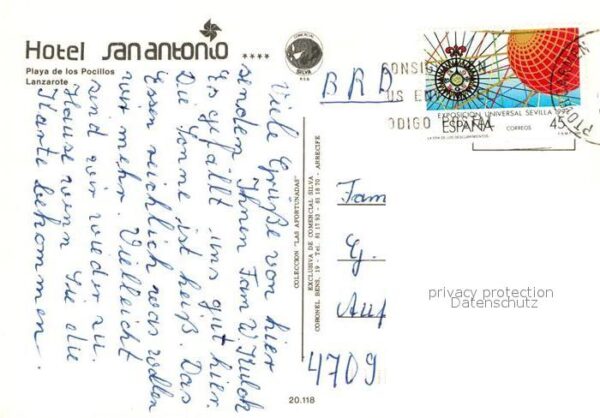 Hotel san antonio ****
Playa de los Pocillos
Lanzarote
Viele Grüße von hier
sendem Ihnen Fam W.
Es gefällt uns gut hier.
Die Sonne ist heiß. Das
Essen reichlich was wollen
wir mehr. Vielleicht
sind wir wieder zu
Hause wenn Sie die
Karte bekommen.
COMERCIAL
SILVA
COLECCION "LAS AFORTUNADAS"
EXCLUSIVA DE COMERCIAL SILVA
CORONEL BENS, 19 - Tel. 81 17 93 - 81 18 70 - ARRECIFE
20.118
BRD
CONSIGN
US EN
ODIGO
EXPOSICION UNIVERSAL SEVILLA 1992
ESPAÑA
CORREOS
45
LA ERA DE LOS DESCUBRIMIENTOS
Fam
G.
Auf
4709
privacy protection
Datenschutz